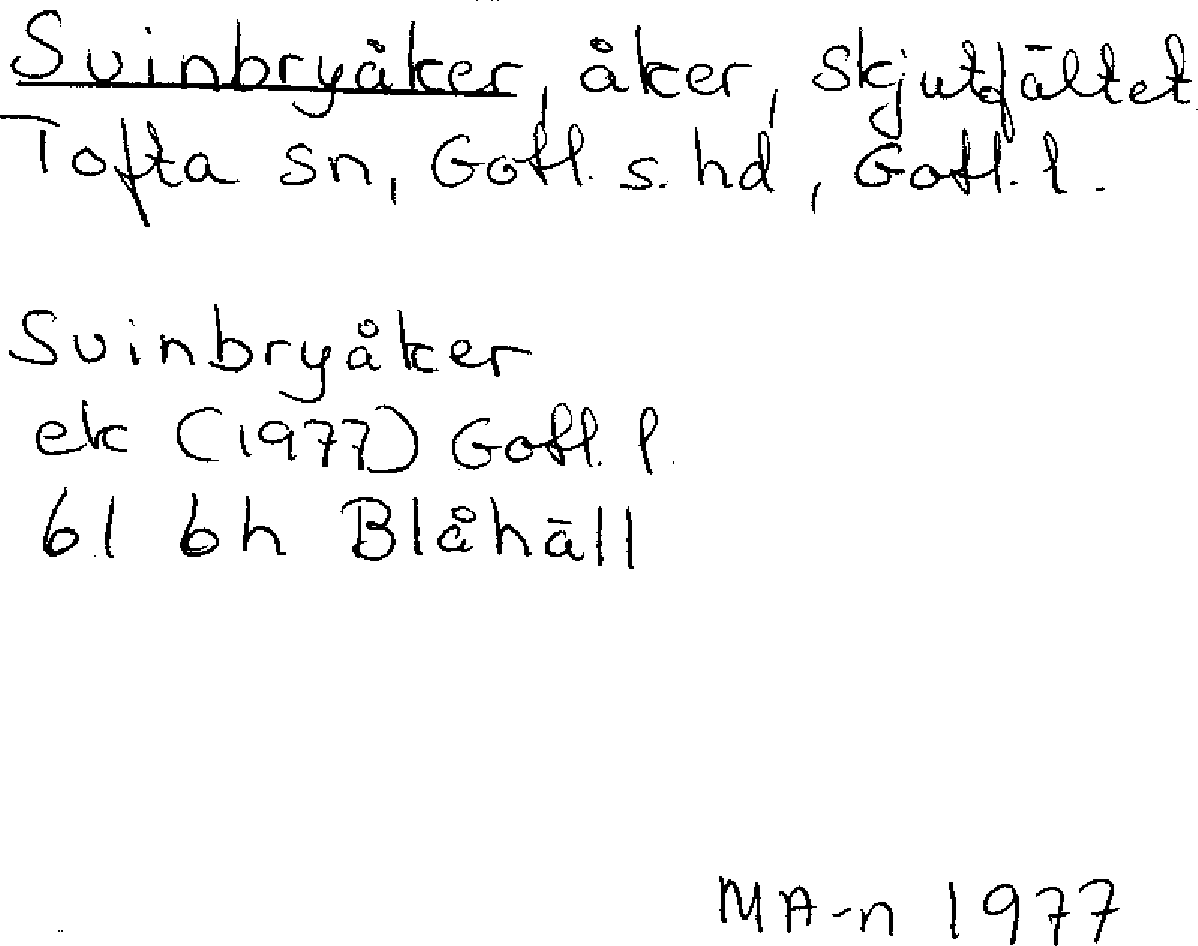 Svinbryåker, åker, skjutfältet
Tofta sn, Gotl. s. hd, Gotl. l.
Svinbryåker
ek (1977) Gotl. l.
6I 6h Blåhäll
MA-n 1977